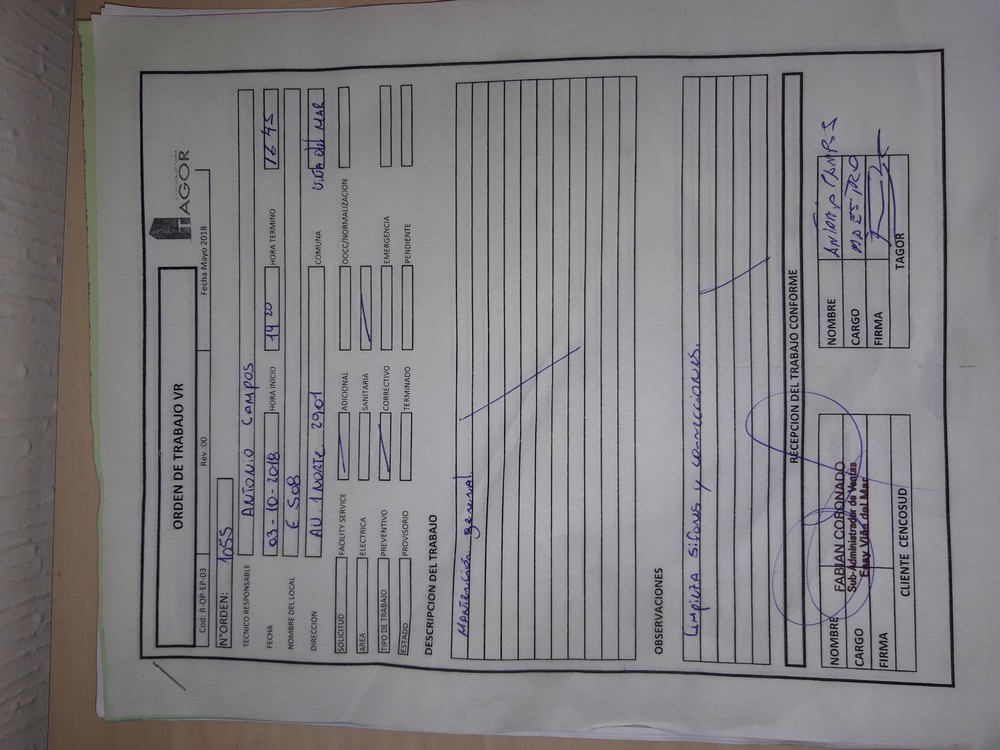 ORDEN DE TRABAJO VR
TAGOR
Cod: R-OP-EP-03 Rev.:00 Fecha Mayo 2018
N°ORDEN: 1055
TECNICO RESPONSABLE ANTONIO CAMPOS
FECHA 03-10-2018 HORA INICIO 14 20 HORA TERMINO 16 45
NOMBRE DEL LOCAL E 508
DIRECCION AV. 1 NORTE 2901 COMUNA VIÑA del MAR
SOLICITUD FACILITY SERVICE ADICIONAL OOCC/NORMALIZACION
AREA ELECTRICA SANITARIA
TIPO DE TRABAJO PREVENTIVO CORRECTIVO EMERGENCIA
ESTADO PROVISORIO TERMINADO PENDIENTE
DESCRIPCION DEL TRABAJO
Mantención general
OBSERVACIONES
Limpieza Sifones y correcciones.
RECEPCION DEL TRABAJO CONFORME
NOMBRE FABIAN CORONADO NOMBRE ANTONIO CAMPOS
CARGO Sub-Administrador de Ventas CARGO MAESTRO
Easy Viña del Mar
FIRMA FIRMA
CLIENTE CENCOSUD TAGOR